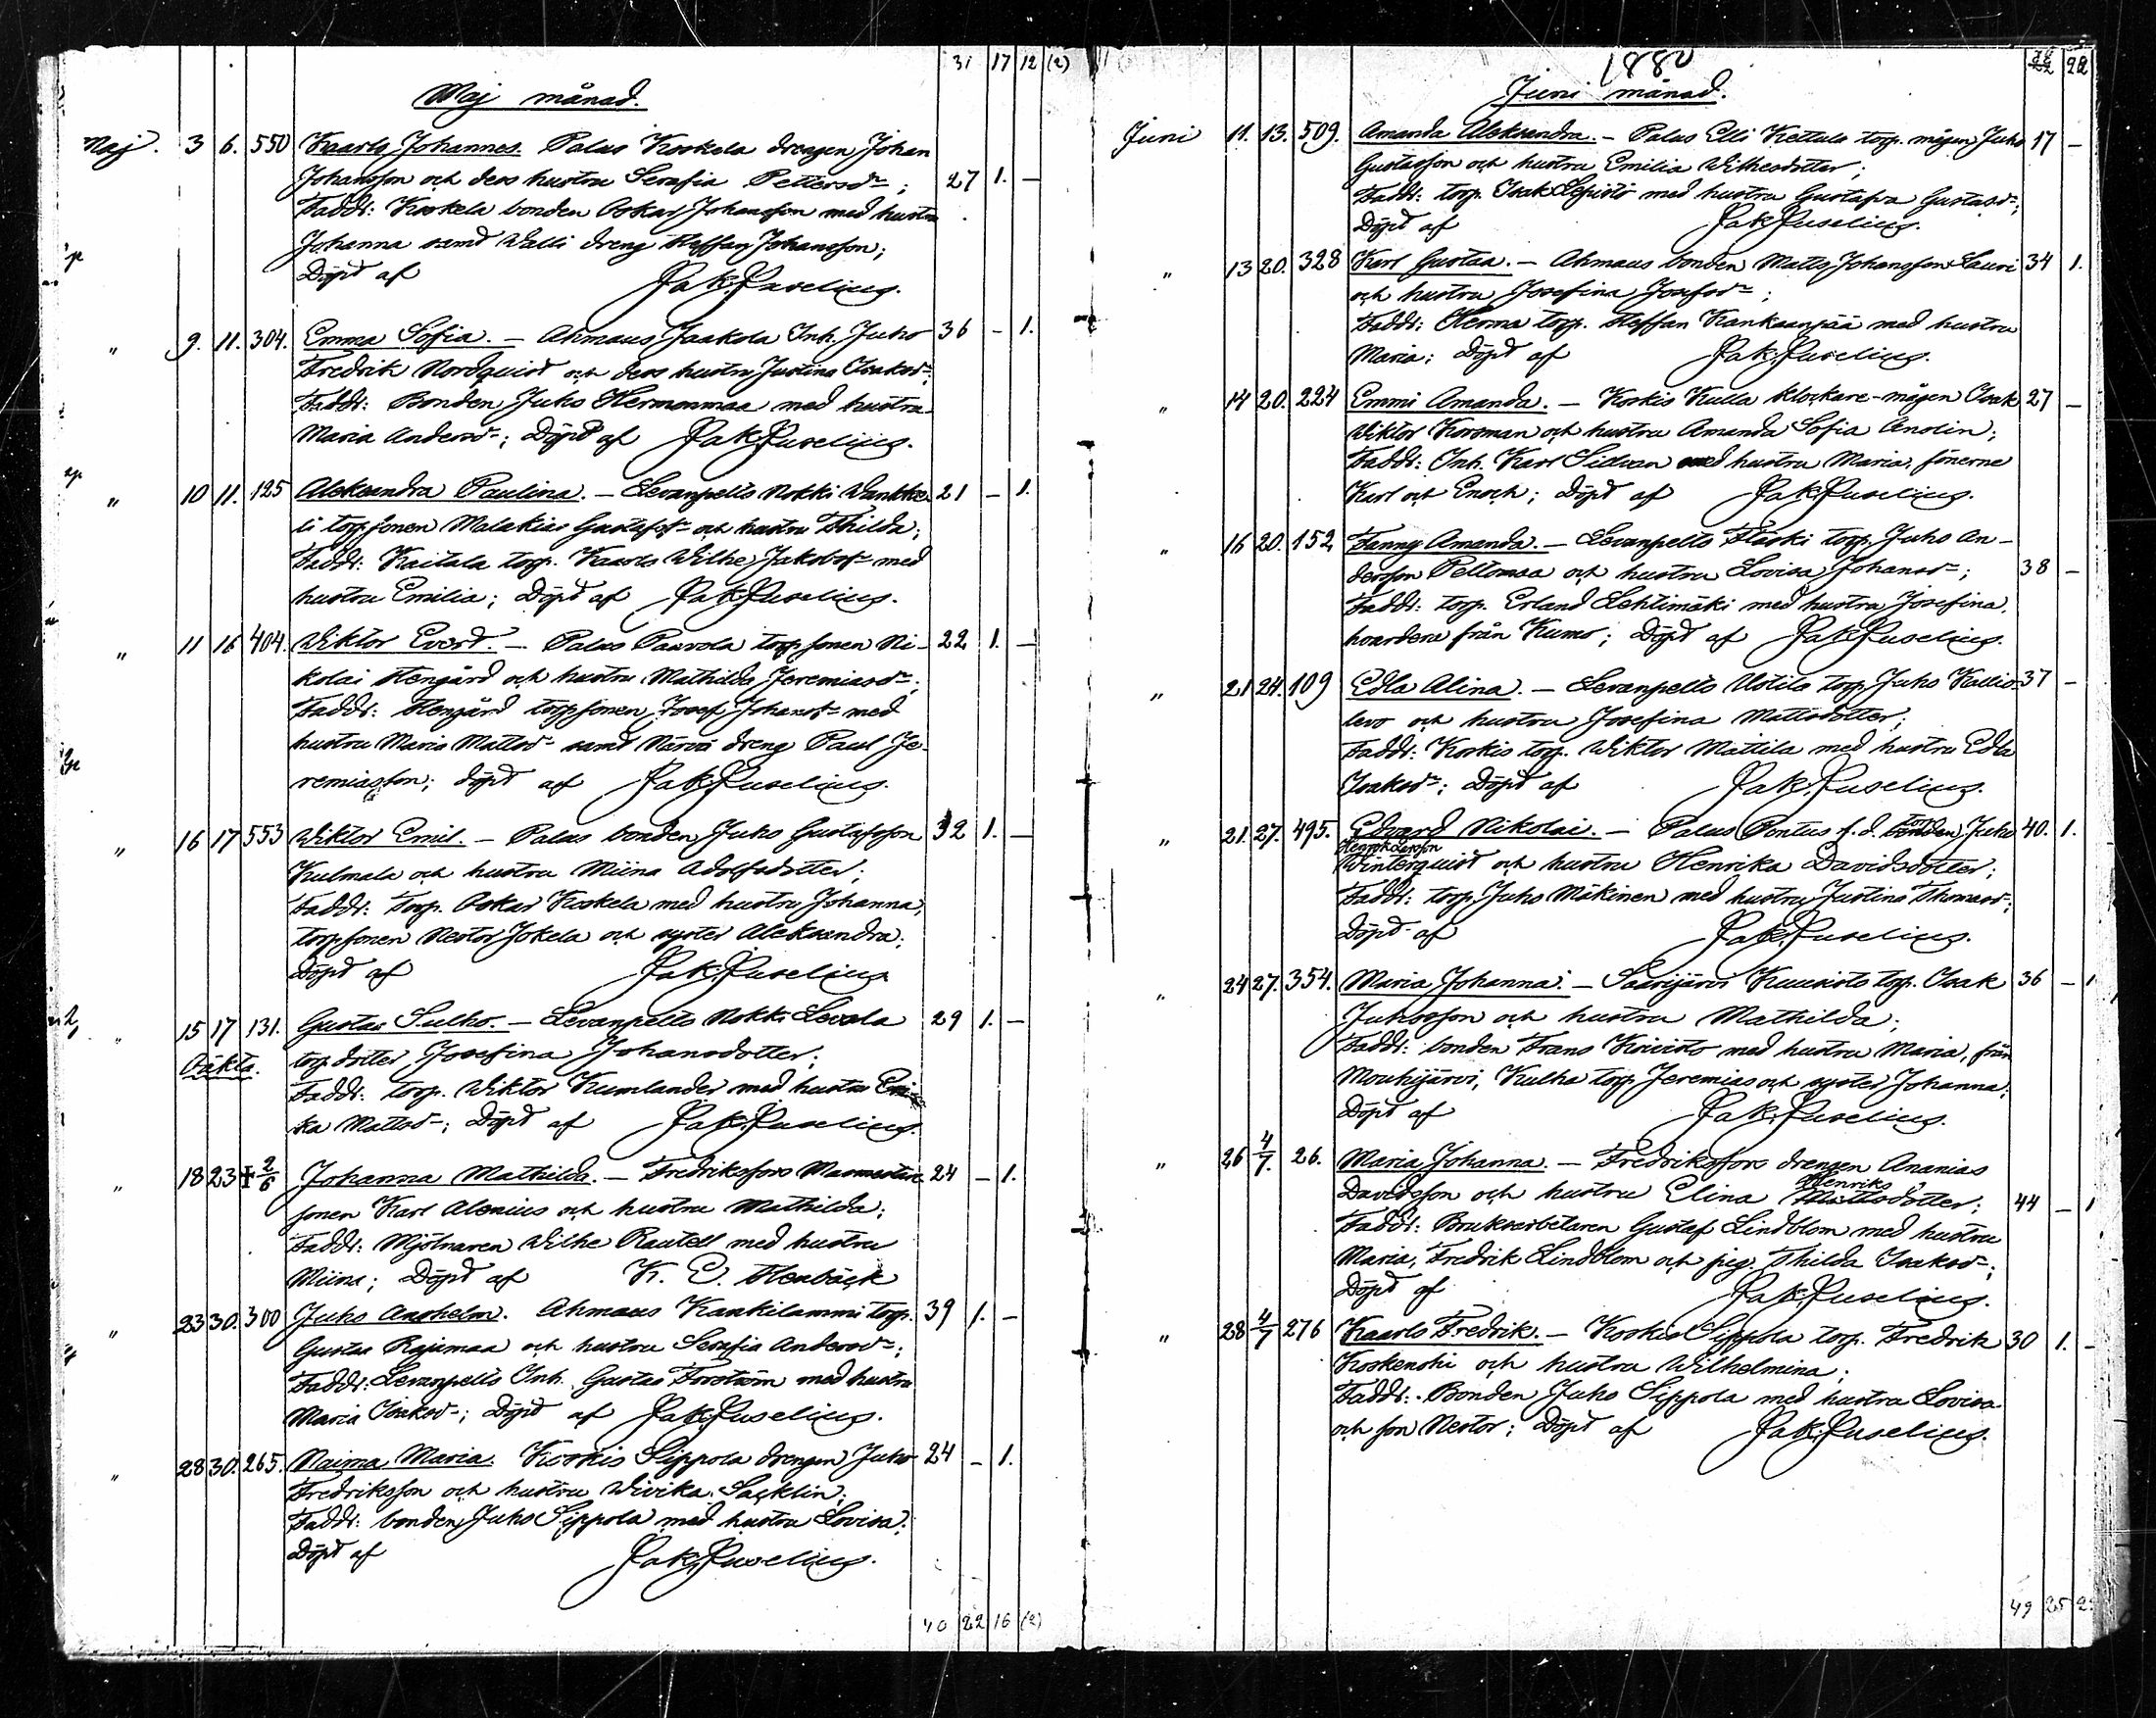 31 17 12 (2)
Maj månad.
Maj. 3 6. 550 Kaarlo Johannes. Palus Koskela drengen Johan
Johansson och dess hustru Serafia Pettersdr; 27 1. –
Faddr: Koskela bonden Oskar Johansson med hustru
Johanna samt Walli dreng Steffan Johansson;
Döpt af Jak. Juselius.
" 9. 11. 304. Emma Sofia. – Ahmaus Jaakola Inh. Juho 36 – 1.
Fredrik Nordquist och dess hustru Justina Isaksdr;
Faddr: Bonden Juho Hermonmaa med hustru
Maria Andersdr; Döpt af Jak. Juselius.
" 10 11. 125 Aleksandra Paulina. – Levanpelto Nokki 21 – 1.
torpsonen Malakias Gustafss och hustru Thilda;
Faddr: Kaitala torp. Kaarlo Wilhe Jakobss med
hustru Emilia; Döpt af Jak. Juselius.
" 11 16 404. Wiktor Evert. – Palus Paavola torpsonen Ni- 22 1. –
kolai Stengård och hustru Mathilda Jeremiasdr;
Faddr: Stengård torpsonen Josef Johanss med
hustru Maria Mattsdr samt Närvä dreng Paul Je-
remiasson; döpt af Jak. Juselius.
" 16 17 553 Wiktor Emil. – Palus bonden Juho Gustafsson 32 1. –
Kulmala och hustru Miina Adolfsdotter;
Faddr: Torp. Oskar Koskela med hustru Johanna,
torpsonen Nestor Jokela och syster Aleksandra;
Döpt af Jak. Juselius.
" 15 17 131. Gustav Sulho. – Levanpelto Nokki Levola 29 1. –
Oäkta. torp.dotter Josefina Johansdotter;
Faddr: torp. Wiktor Kumlander med hustru
Mattsdr; Döpt af Jak. Juselius.
" 18 23 ‡ 2/6 Johanna Mathilda. – Fredriksfors Masmestare 24 – 1.
sonen Karl Alenius och hustru Mathilda;
Faddr: Mjölnaren Wilhe Rautell med hustru
Miina; Döpt af K. E. Stenbäck
" 23 30. 300 Juho Anshelm. Ahmaus Kankilammi torp. 39 1. –
Gustav Rajamaa och hustru Serafia Andersdr;
Faddr: Levanpelto Inh. Gustav Forström med hustru
Maria Isaksdr; Döpt af Jak. Juselius.
" 28 30. 265. Naima Maria. Koskis Sippola drengen Juho 24 – 1.
Fredriksson och hustru Wivika Sacklin;
Faddr: bonden Juho Sippola med hustru Lovisa;
Döpt af Jak. Juselius.
40 22 16 (2)
1880
22
Juni månad.
Juni 11. 13. 509. Amanda Aleksandra. – Palus Elli Kettula torp. mågen Juho 17 –
Gustafsson och hustru Emilia Wilhesdotter;
Faddr: torp. Isak Lepistö med hustru Gustafva Gustavdr;
Döpt af Jak. Juselius.
" 13 20. 328 Karl Gustaa. – Ahmaus bonden Matts Johansson Lauri 34 1.
och hustru Josefina Josefsdr;
Faddr: Herma torp. Steffan Kankaanpää med hustru
Maria; Döpt af Jak. Juselius.
" 14 20. 224 Emmi Amanda. – Koskis Kulla klockare-mågen Isak 27 –
Wiktor Korsman och hustru Amanda Sofia Anolin;
Faddr: Inh. Karl Sidvan med hustru Maria, sönerne
Karl och Enoch; Döpt af Jak. Juselius.
" 16 20. 152 Fanny Amanda. – Levanpelto Fläski torp. Juho An-
dersson Peltomaa och hustru Lovisa Johansdr; 38 –
Faddr: torp. Erland Lehtimäki med hustru Josefina,
hvardera från Kumo; Döpt af Jak. Juselius.
" 21 24. 109 Edla Alina. – Levanpelto Uotila torp. Juho Kallio- 37 –
levo och hustru Josefina Mattsdotter;
Faddr: Koskis torp. Wiktor Mattila med hustru Edla
Isaksdr; Döpt af Jak. Juselius.
torp
" 21. 27. 495. Edvard Nikolai. – Palus Pontus f.d. bonden Juho 40. 1.
Henriksson
Winterquist och hustru Henrika Davidsdotter;
Faddr: torp. Juho Mäkinen med hustru Justina Thomasdr;
Döpt af Jak. Juselius.
" 24 27. 354. Maria Johanna. – Saarijärvi Kuusisto torp. Isak 36 – 1
Juhosson och hustru Mathilda;
Faddr: bonden Frans Kivistö med hustru Maria, från
Mouhijärvi, Kulha torp. Jeremias och syster Johanna;
Döpt af Jak. Juselius.
" 26 4/7. 26. Maria Johanna. – Fredriksfors drengen Ananias
Henriks
Davidsson och hustru Elina Mattsdotter; 44 – 1
Faddr: Bruksarbetaren Gustaf Lindblom med hustru
Maria, Fredrik Lindblom och pig. Thilda Isaksdr;
Döpt af Jak. Juselius.
" 28 4/7 276 Kaarlo Fredrik. – Koskis Sippola torp. Fredrik 30 1. –
Koskenohi och hustru Wilhelmina;
Faddr: Bonden Juho Sippola med hustru Lovisa
och son Nestor; Döpt af Jak. Juselius.
49 25